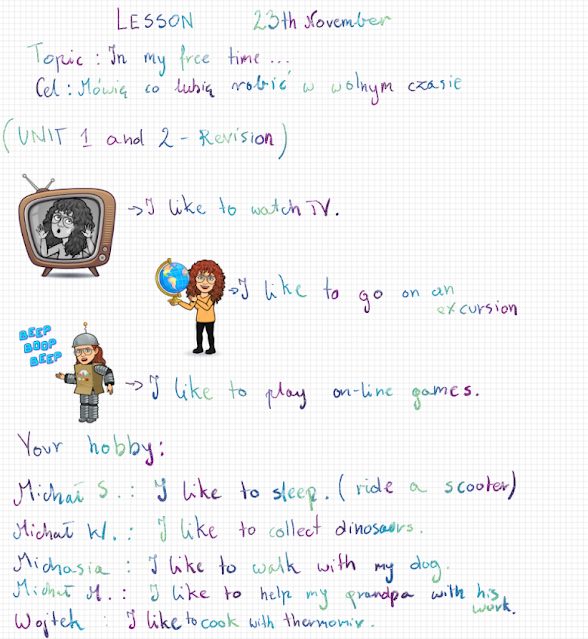 LESSON 23th November
Topic: In my free time...
Cel: Mówię co lubię robić w wolnym czasie
(UNIT 1 and 2 - Revision)
→ I like to watch TV.
→ I like to go on an
excursion
BEEP
BOOP
BEEP
→ I like to play on-line games.
Your hobby:
Michał S.: I like to sleep. (ride a scooter)
Michał W.: I like to collect dinosaurs.
Michasia: I like to walk with my dog.
Michał M.: I like to help my grandpa with his
work.
Wojtek: I like to cook with thermomix.